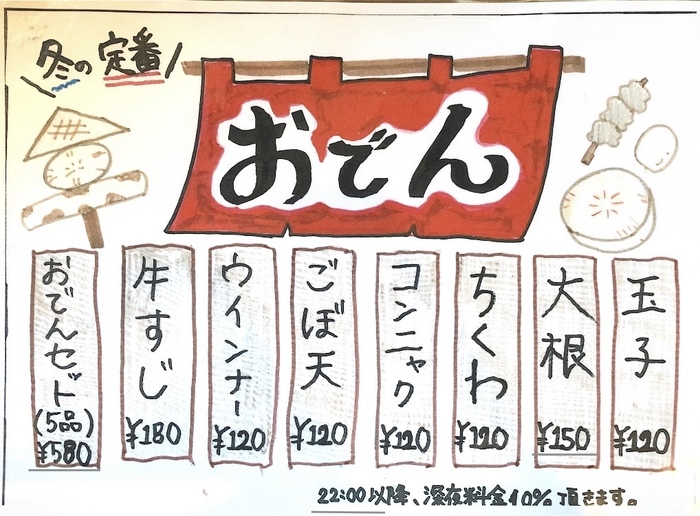 冬の定番
おでん
玉子
¥120
大根
¥150
ちくわ
¥120
コンニャク
¥120
ごぼ天
¥120
ウインナー
¥120
牛すじ
¥180
おでんセット
(5品)
¥580
22:00以降、深夜料金10%頂きます。